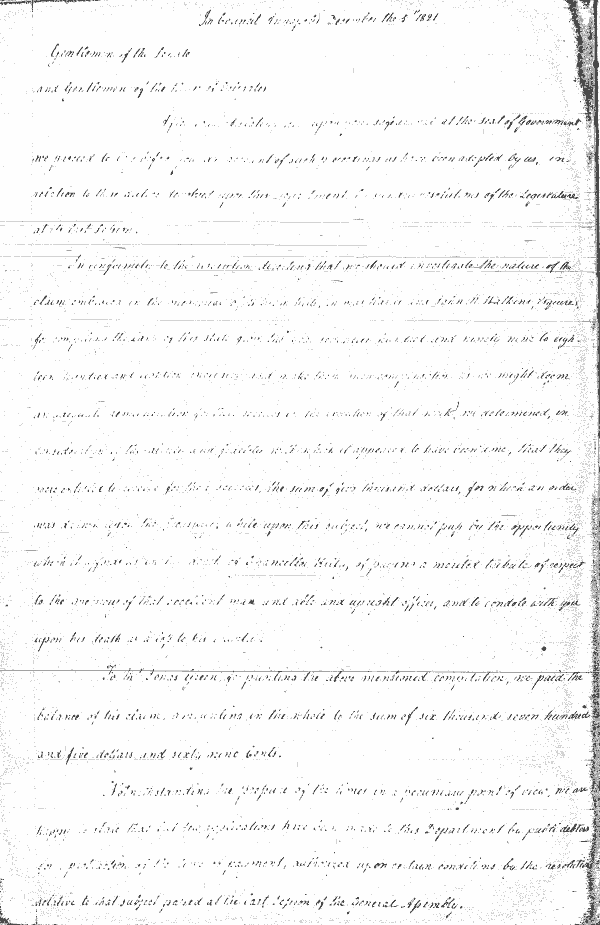 In Council Annapolis December the 5th 1821
Gentlemen of the Senate
and Gentlemen of the House of Delegates
upon your at the seat of Government,
we proceed to you an account of such proceedings as have been adopted by us, in
relation to the duties devolved upon this Department by resolutions of the Legislature
at its last Session.
In conformity to the resolution directing that we should investigate the nature of the
claim embraced in the memorial of Harris and John N Watkins, Esquires,
for compiling the laws of this state from the year seventeen hundred and ninety nine to eigh-
teen hundred and and make them such compensation as we might deem
an adequate remuneration for their services in the execution of that work, we determined, in
consideration of the and with which it appeared to have been done, that they
were entitled to receive for their services, the sum of five thousand dollars, for which an order
was drawn upon the Treasurer, while upon this subject, we cannot pass by the opportunity
which it affords us in the death of Chancellor Kilty, of paying a merited tribute of respect
to the memory of that excellent man and able and upright officer, and to condole with you
upon his death as a loss to his country.
To Mr Jonas Green, for printing the above mentioned compilation, we paid the
balance of his claim, amounting in the whole to the sum of six thousand seven hundred
and five dollars and sixty nine cents.
Notwithstanding the pressure of the times in a pecuniary point of view, we are
happy to state that but few applications have been made to this Department by public debtors
for a of the time of payment, authorized upon certain conditions by the resolution
relative to that subject passed at the last Session of the General Assembly.